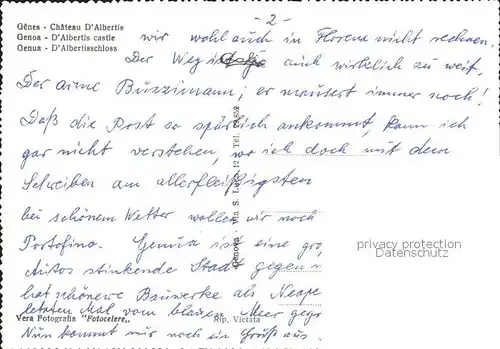 - 2 -
Gênes - Château D'Albertis
Genoa - D'Albertis castle
Genua - D'Albertisschloss
wir wohl auch in Florenz nicht rechnen.
Der Weg ist ja auch wirklich zu weit.
Der arme Buzzimann; er mausert immer noch!
Daß die Post so spärlich ankommt, kann ich
gar nicht verstehen, wo ich doch mit dem
Schreiben am allerfleißigsten
bei schönem Wetter wollen wir noch
Portofino. Genua ist eine gro
Autos stinkende Stadt gegen
hat schönere Bauwerke als Neape
letzten Mal vom blauen Meer gegr
Nun kommt nur noch ein Gruß aus
Vera Fotografia "Fotocelere"
Rip. Vietata
Genova - Via S. Luca 12 Tel.
privacy protection
Datenschutz